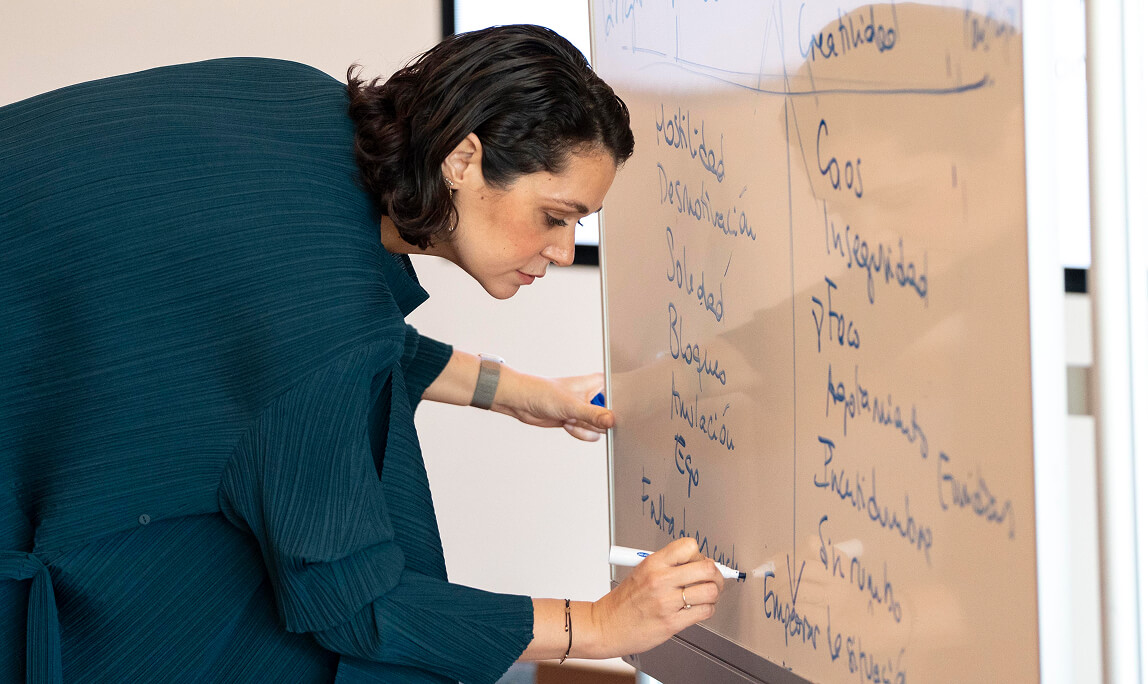 Creatilidad
Hostilidad
Desmotivación
Soledad
Bloqueo
Anulación
Ego
Falta
Caos
Inseguridad
Agotamiento
Incertidumbre
Sin rumbo
Empeorar la situación